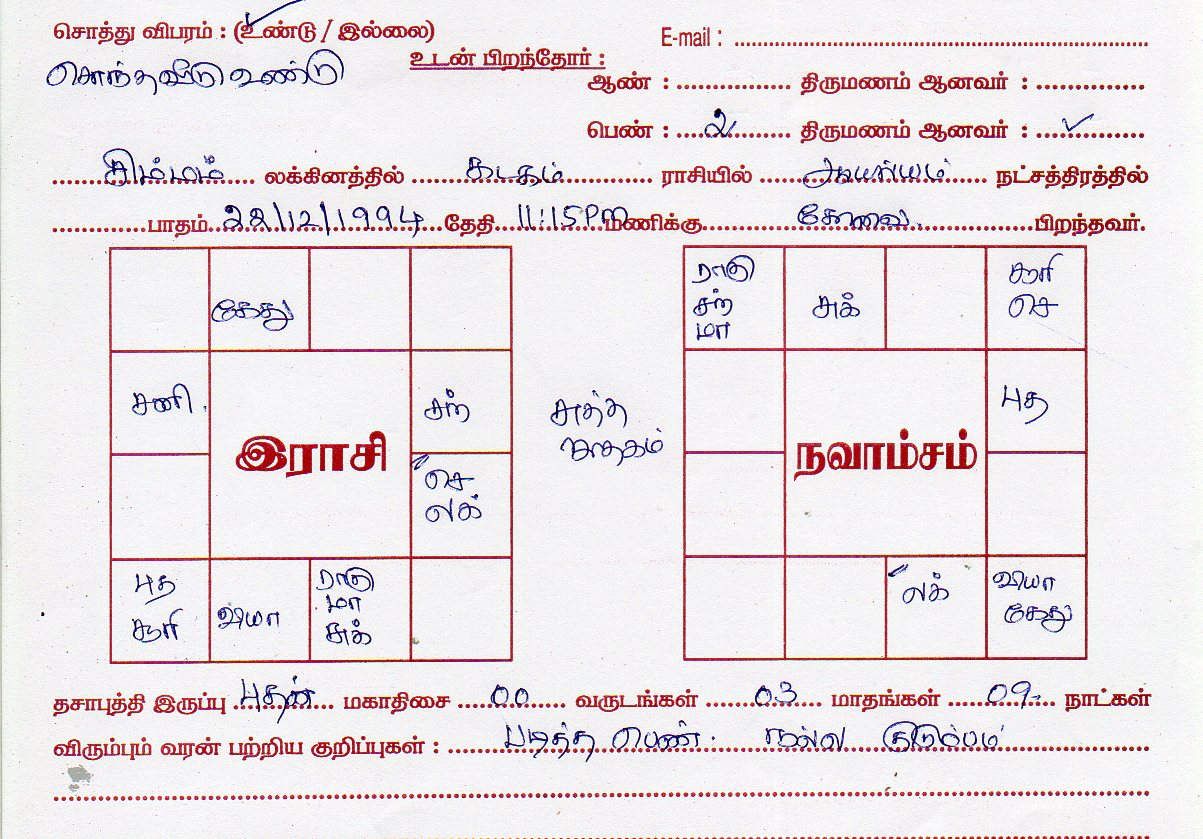 சொத்து விபரம் : (உண்டு / இல்லை)
E-mail : ......................
சொந்தவீடு உண்டு
உடன் பிறந்தோர் :
ஆண் : ................ திருமணம் ஆனவர் : ...............
பெண் : .... 2 ......... திருமணம் ஆனவர் : .... ✓ .........
சிம்மம் லக்கினத்தில் கடகம் ராசியில் ஆயில்யம் நட்சத்திரத்தில்
பாதம் 22/12/1994 தேதி 11:15 PM மணிக்கு கோவை பிறந்தவர்.
கேது
சனி
சந்
செ
லக்
புத
சூரி
வியா
ராகு
மா
சுக்
இராசி
சுத்த
ஜாதகம்
ராகு
சந்
மா
சுக்
சூரி
செ
புத
நவாம்சம்
லக்
வியா
கேது
தசாபுத்தி இருப்பு புதன் மகாதிசை 00 வருடங்கள் 03 மாதங்கள் 09 நாட்கள்
விரும்பும் வரன் பற்றிய குறிப்புகள் : படித்த பெண். நல்ல குடும்பம்